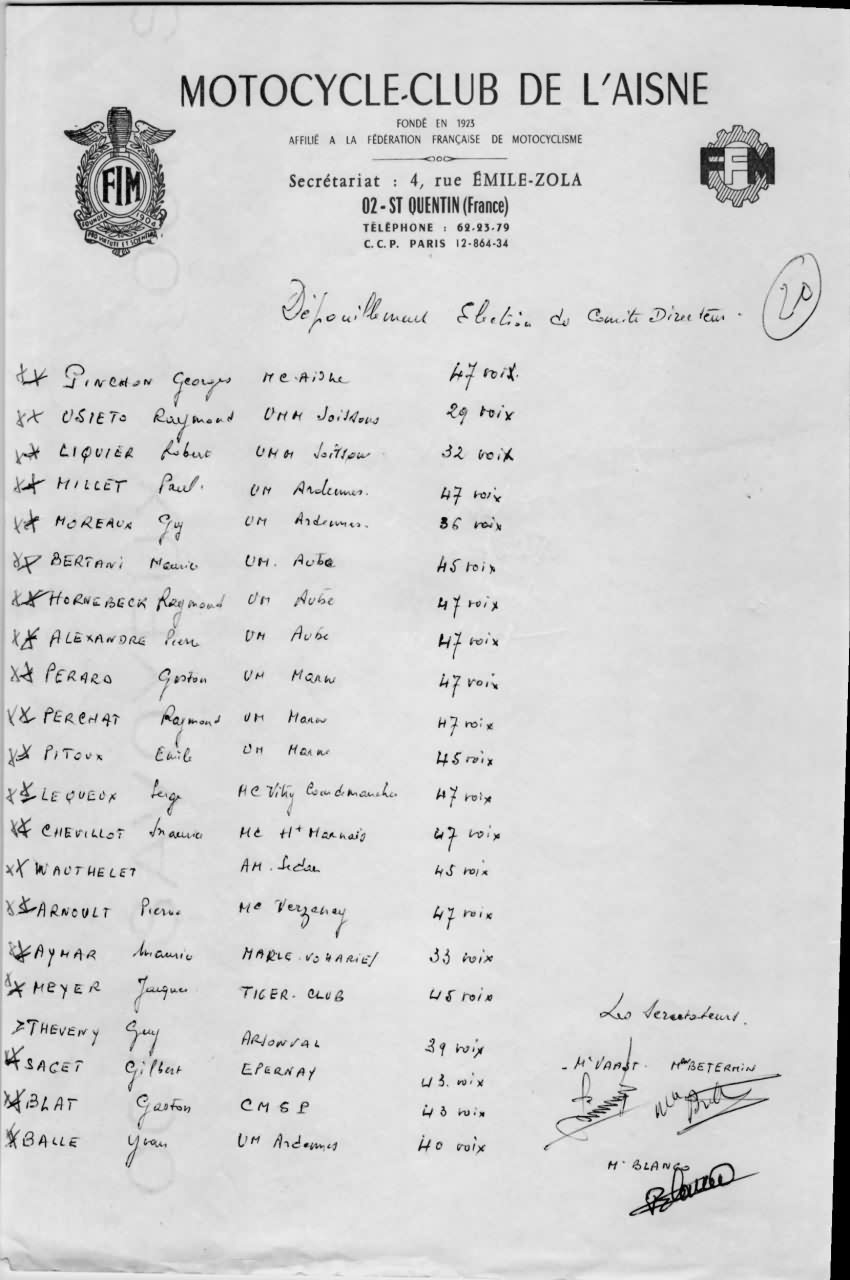 MOTOCYCLE-CLUB DE L'AISNE
FONDÉ EN 1923
AFFILIÉ A LA FÉDÉRATION FRANÇAISE DE MOTOCYCLISME
FIM
FOUNDED 1904
PRO VIRTUTE ET SCIENTIA
FFM
Secrétariat : 4, rue ÉMILE-ZOLA
02 - ST QUENTIN (France)
TÉLÉPHONE : 62-23-79
C.C.P. PARIS 12-864-34
Dépouillement Election du Comité Directeur.
20
PINCHON Georges MC. AISNE 47 voix
USIETO Raymond UMM Soissons 29 voix
LIQUIER Robert UMM Soissons 32 voix
MILLET Paul. UM Ardennes. 47 voix
MOREAUX Guy UM Ardennes. 36 voix
BERTANI Maurice UM. Aube 45 voix
HORNEBECK Raymond UM Aube 47 voix
ALEXANDRE Pierre UM Aube 47 voix
PERARD Gaston UM Marne 47 voix
PERCHAT Raymond UM Marne 47 voix
PITOUX Emile UM Marne 45 voix
LEQUEUX Serge MC Vitry 47 voix
CHEVILLOT Maurice MC Ht Marnais 47 voix
WAUTHELET AM. Sedan 45 voix
ARNOULT Pierre MC Verzenay 47 voix
AYMAR Maurice MARLE-VOHARIES 33 voix
MEYER Jacques TIGER-CLUB 45 voix
THEVENY Guy ARSONVAL 39 voix
SAGET Gilbert EPERNAY 43 voix
BLAT Gaston CMSP 43 voix
BALLE Yvan UM Ardennes 40 voix
Les Scrutateurs.
- Mr VAAST. Mme BETERMIN
Mr BLANGO